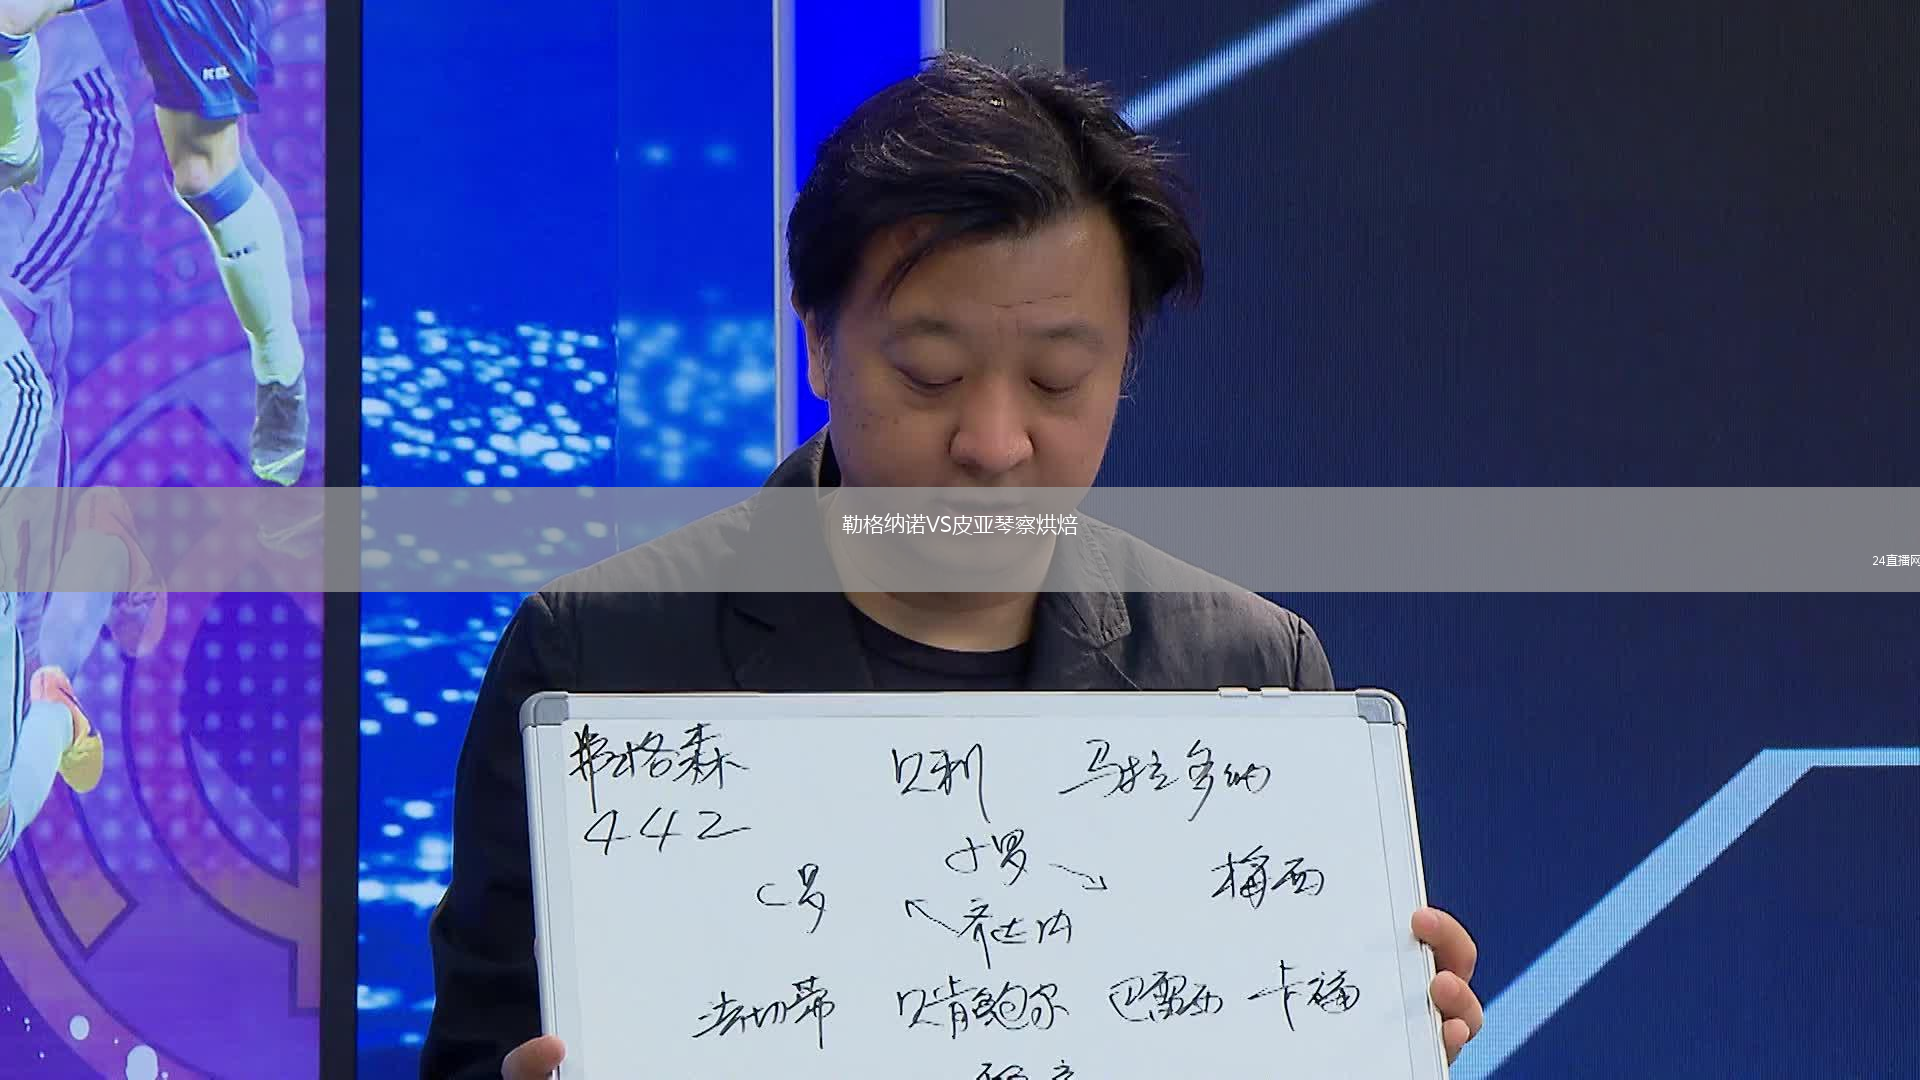 KEL
勒格纳诺VS皮亚琴察烘焙
24直播网
弗格森 贝利 马拉多纳
442
小罗
C罗 梅西
齐达内
法切蒂 贝肯鲍尔 巴雷西 卡福